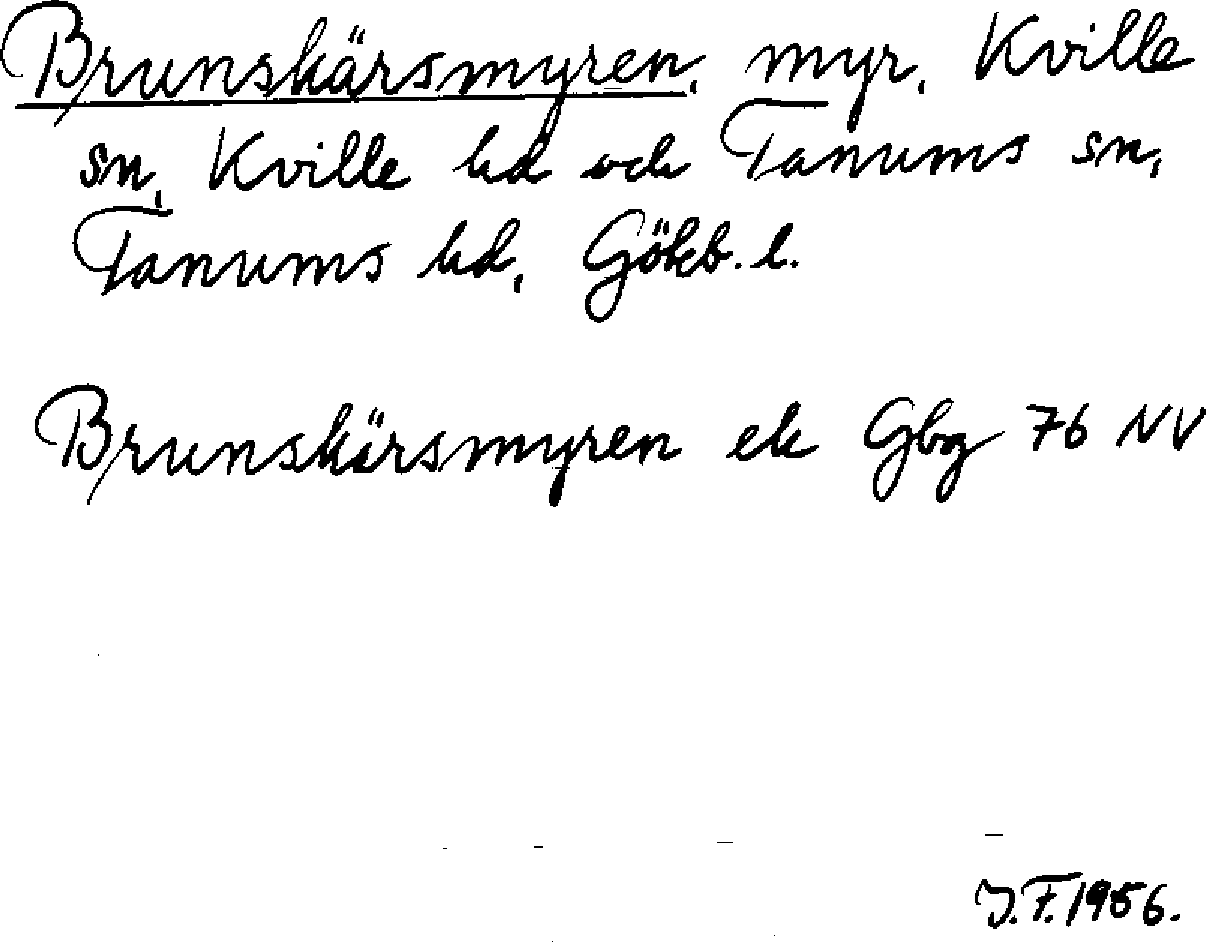 Brunskärsmyren, myr, Kville
sn, Kville hd och Tanums sn,
Tanums hd, Göteb. l.
Brunskärsmyren ek Gbg 76 NV
J.F. 1956.